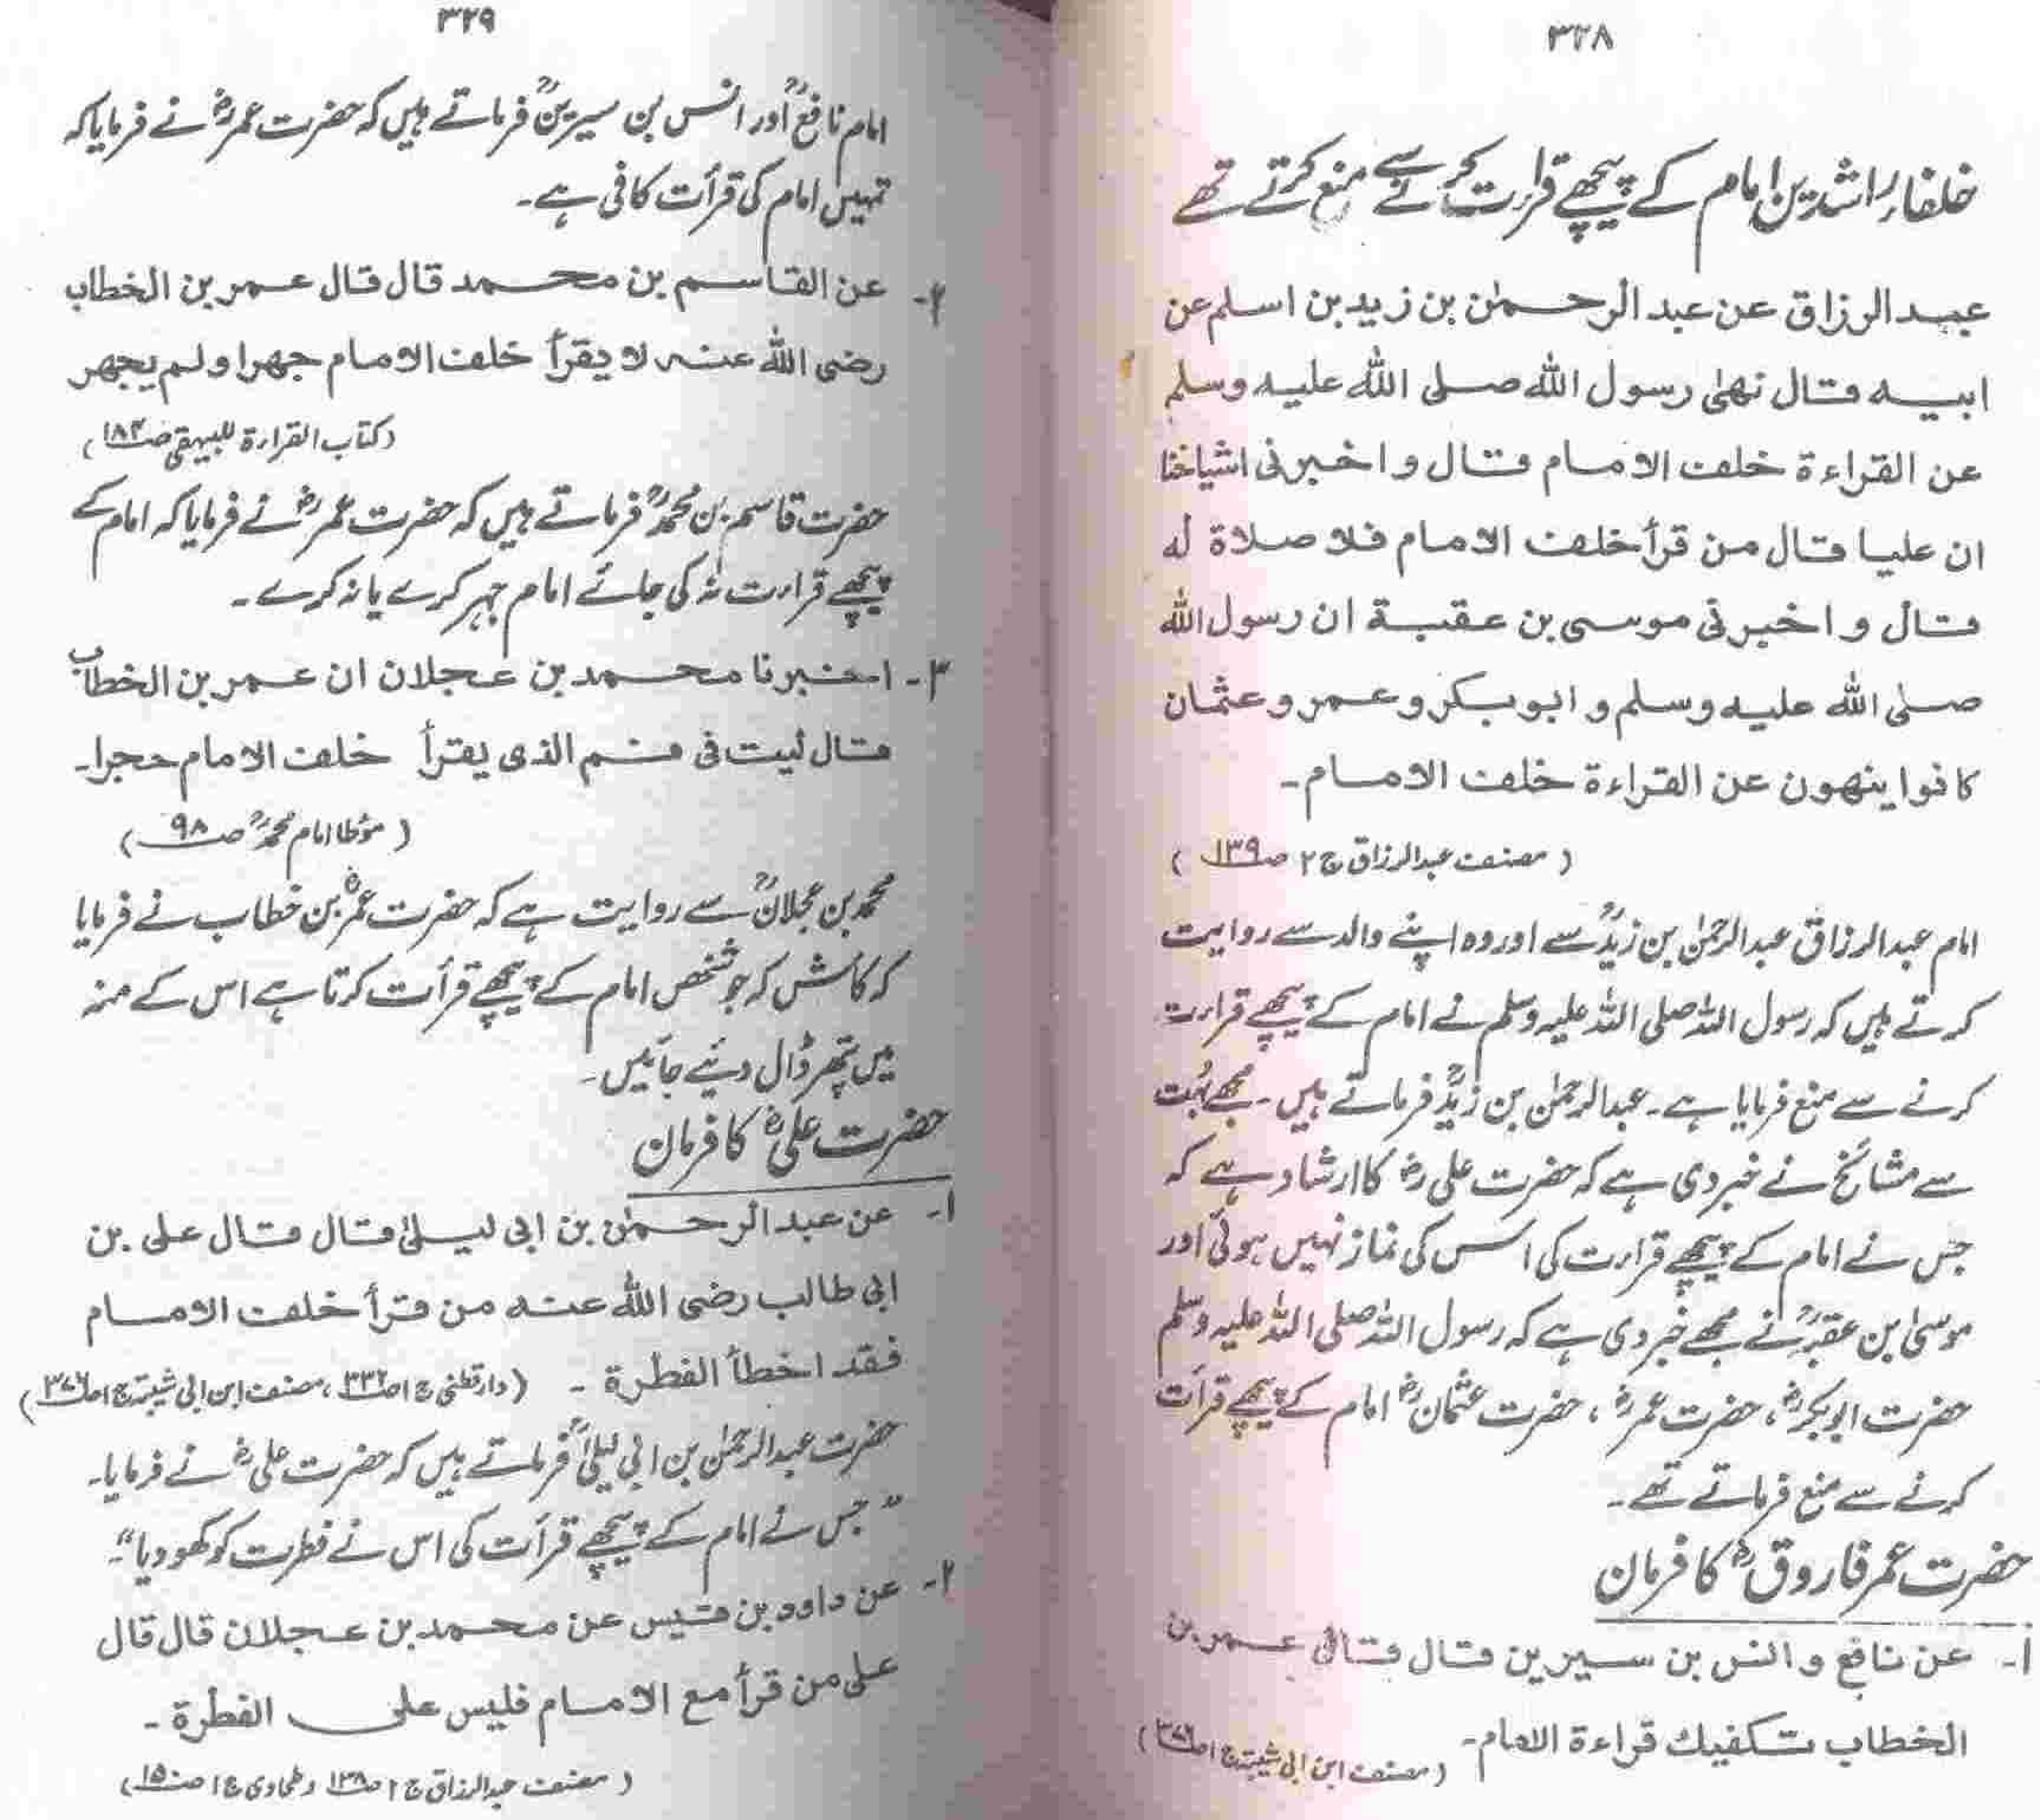 ۳۲۸
خلفاء راشدین امام کے پیچھے قراءت کرنے سے منع کرتے تھے
عبد الرزاق عن عبد الرحمٰن بن زید بن اسلم عن
ابیه قال نهیٰ رسول الله صلی الله علیه وسلم
عن القراءة خلف الامام قال و اخبرنی اشیاخنا
ان علیا قال من قرأ خلف الامام فلا صلاة له
قال و اخبرنی موسی بن عقبة ان رسول الله
صلی الله علیه وسلم و ابوبکر و عمر و عثمان
کانوا ینهون عن القراءة خلف الامام۔
( مصنف عبدالرزاق ج ۲ ص ۱۳۹ )
امام عبدالرزاق عبدالرحمٰن بن زیدؒ سے اور وہ اپنے والد سے روایت
کرتے ہیں کہ رسول اللہ صلی اللہ علیہ وسلم نے امام کے پیچھے قراءت
کرنے سے منع فرمایا ہے۔ عبدالرحمٰن بن زیدؒ فرماتے ہیں۔ مجھے بہت
سے مشائخ نے خبر دی ہے کہ حضرت علیؓ کا ارشاد ہے کہ
جس نے امام کے پیچھے قراءت کی اس کی نماز نہیں ہوئی اور
موسیٰ بن عقبہؒ نے مجھے خبر دی ہے کہ رسول اللہ صلی اللہ علیہ وسلم
حضرت ابوبکرؓ، حضرت عمرؓ، حضرت عثمانؓ امام کے پیچھے قرأت
کرنے سے منع فرماتے تھے۔
حضرت عمر فاروقؓ کا فرمان
۱۔ عن نافع و انس بن سیرین قال قال عمر بن
الخطاب تکفیك قراءة الامام۔ (مصنف ابن ابی شیبۃ ج ۱ ص ۳۷۶)
۳۲۹
امام نافعؒ اور انس بن سیرینؒ فرماتے ہیں کہ حضرت عمرؓ نے فرمایا کہ
تمہیں امام کی قرأت کافی ہے۔
۲۔ عن القاسم بن محمد قال قال عمر بن الخطاب
رضی الله عنه لا یقرأ خلف الامام جهرا و لم یجهر
(کتاب القراءة للبیہقی ص ۱۸۴)
حضرت قاسم بن محمدؒ فرماتے ہیں کہ حضرت عمرؓ نے فرمایا کہ امام کے
پیچھے قراءت نہ کی جائے امام جہر کرے یا نہ کرے۔
۳۔ اخبرنا محمد بن عجلان ان عمر بن الخطاب
قال لیت فی فم الذی یقرأ خلف الامام حجرا۔
( مؤطا امام محمدؒ ص ۹۸ )
محمد بن عجلانؒ سے روایت ہے کہ حضرت عمرؓ بن خطاب نے فرمایا
کہ کاش کہ جو شخص امام کے پیچھے قرأت کرتا ہے اس کے منہ
میں پتھر ڈال دیئے جائیں۔
حضرت علیؓ کا فرمان
۱۔ عن عبد الرحمٰن بن ابی لیلیٰ قال قال علی بن
ابی طالب رضی الله عنه من قرأ خلف الامام
فقد اخطأ الفطرة۔ (دارقطنی ج ۱ ص ۳۳۲، مصنف ابن ابی شیبۃ ج ۱ ص ۳۷۶)
حضرت عبدالرحمٰن بن ابی لیلیٰؒ فرماتے ہیں کہ حضرت علیؓ نے فرمایا۔
"جس نے امام کے پیچھے قرأت کی اس نے فطرت کو کھو دیا"۔
۲۔ عن داود بن قیس عن محمد بن عجلان قال قال
علی من قرأ مع الامام فلیس علی الفطرة۔
( مصنف عبدالرزاق ج ۲ ص ۱۳۸ و طحاوی ج ۱ ص ۱۵۰ )